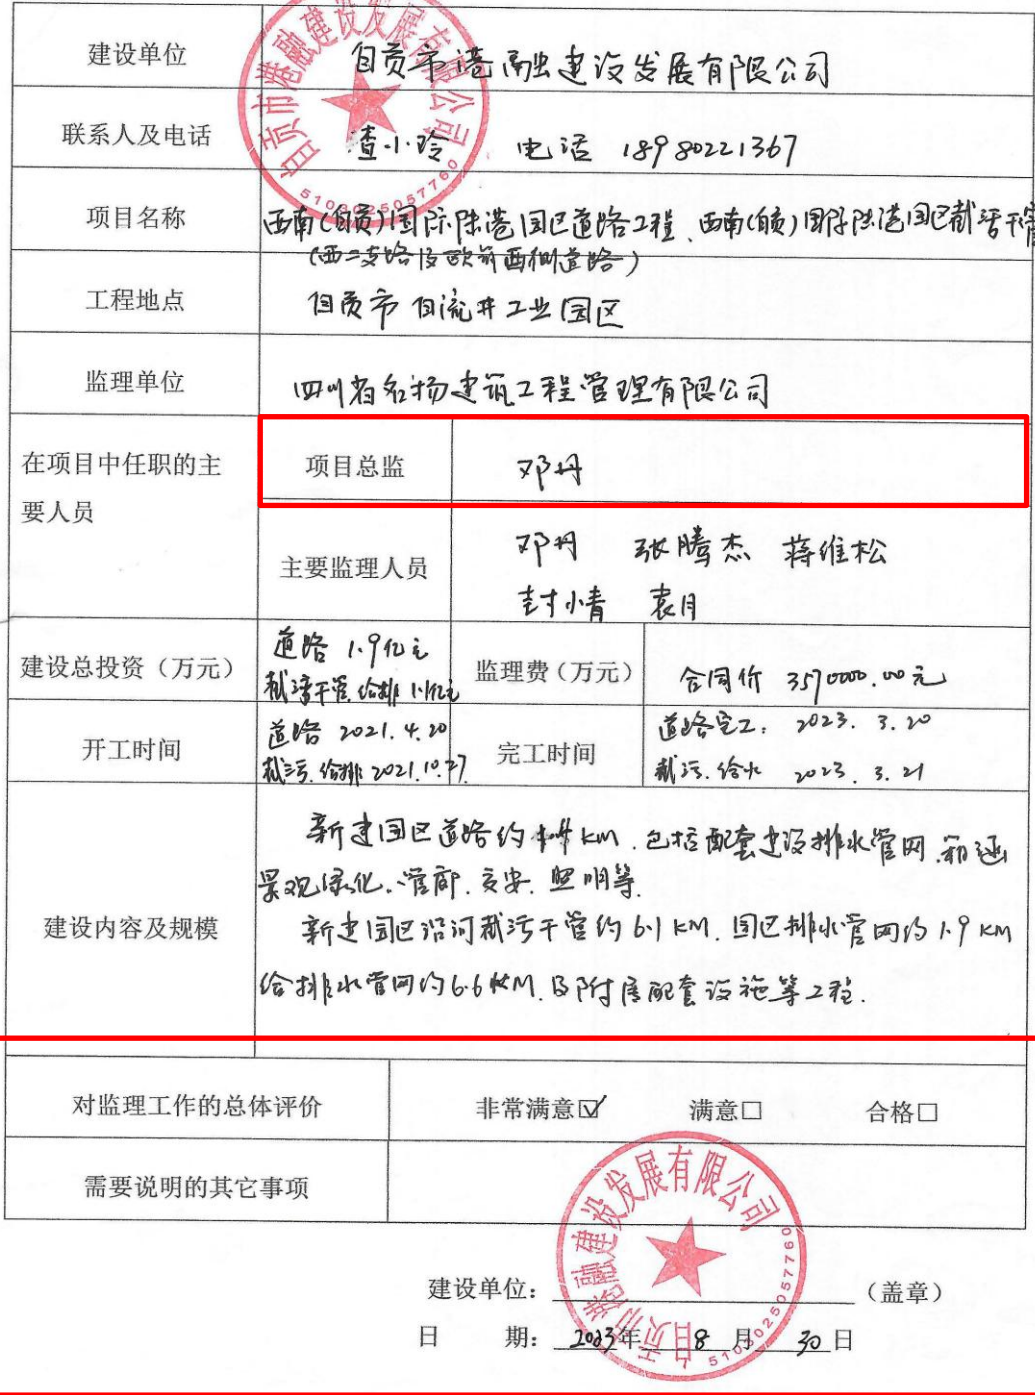 建设单位 自贡市港融建设发展有限公司
自贡市港融建设发展有限公司
5103025057760
联系人及电话 查小玲 电话 18980221367
项目名称 西南(自贡)国际陆港园区道路工程、西南(自贡)国际陆港园区截污干管
(西二支路及欧 西侧道路)
工程地点 自贡市自流井工业园区
监理单位 四川省名扬建筑工程管理有限公司
在项目中任职的主
要人员
项目总监 邓丹
主要监理人员 邓丹 张腾杰 蒋维松
封小青 袁月
建设总投资（万元） 道路 1.9亿元
截污干管.给排 1.1亿元
监理费（万元） 合同价 3570000.00元
开工时间 道路 2021.4.20
截污.给排 2021.10.27
完工时间 道路完工: 2023.3.20
截污.给水 2023.3.21
建设内容及规模
新建园区道路约 KM.包括配套建设排水管网.箱涵
景观绿化、管廊.交安.照明等.
新建园区沿河截污干管约6.1KM.园区排水管网约1.9KM
给排水管网约6.6KM.及附属配套设施等工程.
对监理工作的总体评价 非常满意☑ 满意□ 合格□
需要说明的其它事项
自贡市港融建设发展有限公司
5103025057760
建设单位：（盖章）
日 期：2023年8月30日